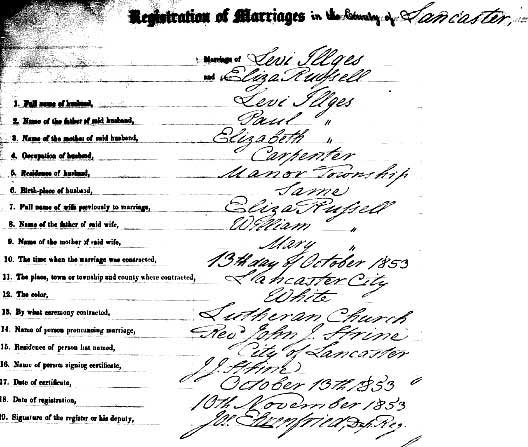 Registration of Marriages in the County of Lancaster,
Marriage of Levi Illges
and Eliza Russell
1. Full name of husband, Levi Illges
2. Name of the father of said husband, Paul "
3. Name of the mother of said husband, Elizabeth "
4. Occupation of husband, Carpenter
5. Residence of husband, Manor Township
6. Birth-place of husband, Same
7. Full name of wife previously to marriage, Eliza Russell
8. Name of the father of said wife, William "
9. Name of the mother of said wife, Mary "
10. The time when the marriage was contracted, 13th day of October 1853
11. The place, town or township and county where contracted, Lancaster City
12. The color, White
13. By what ceremony contracted, Lutheran Church
14. Name of person pronouncing marriage, Rev John J. Strine
15. Residence of person last named, City of Lancaster
16. Name of person signing certificate, J J Strine
17. Date of certificate, October 13th, 1853 "
18. Date of registration, 10th November 1853
19. Signature of the register or his deputy, Dep. Reg.